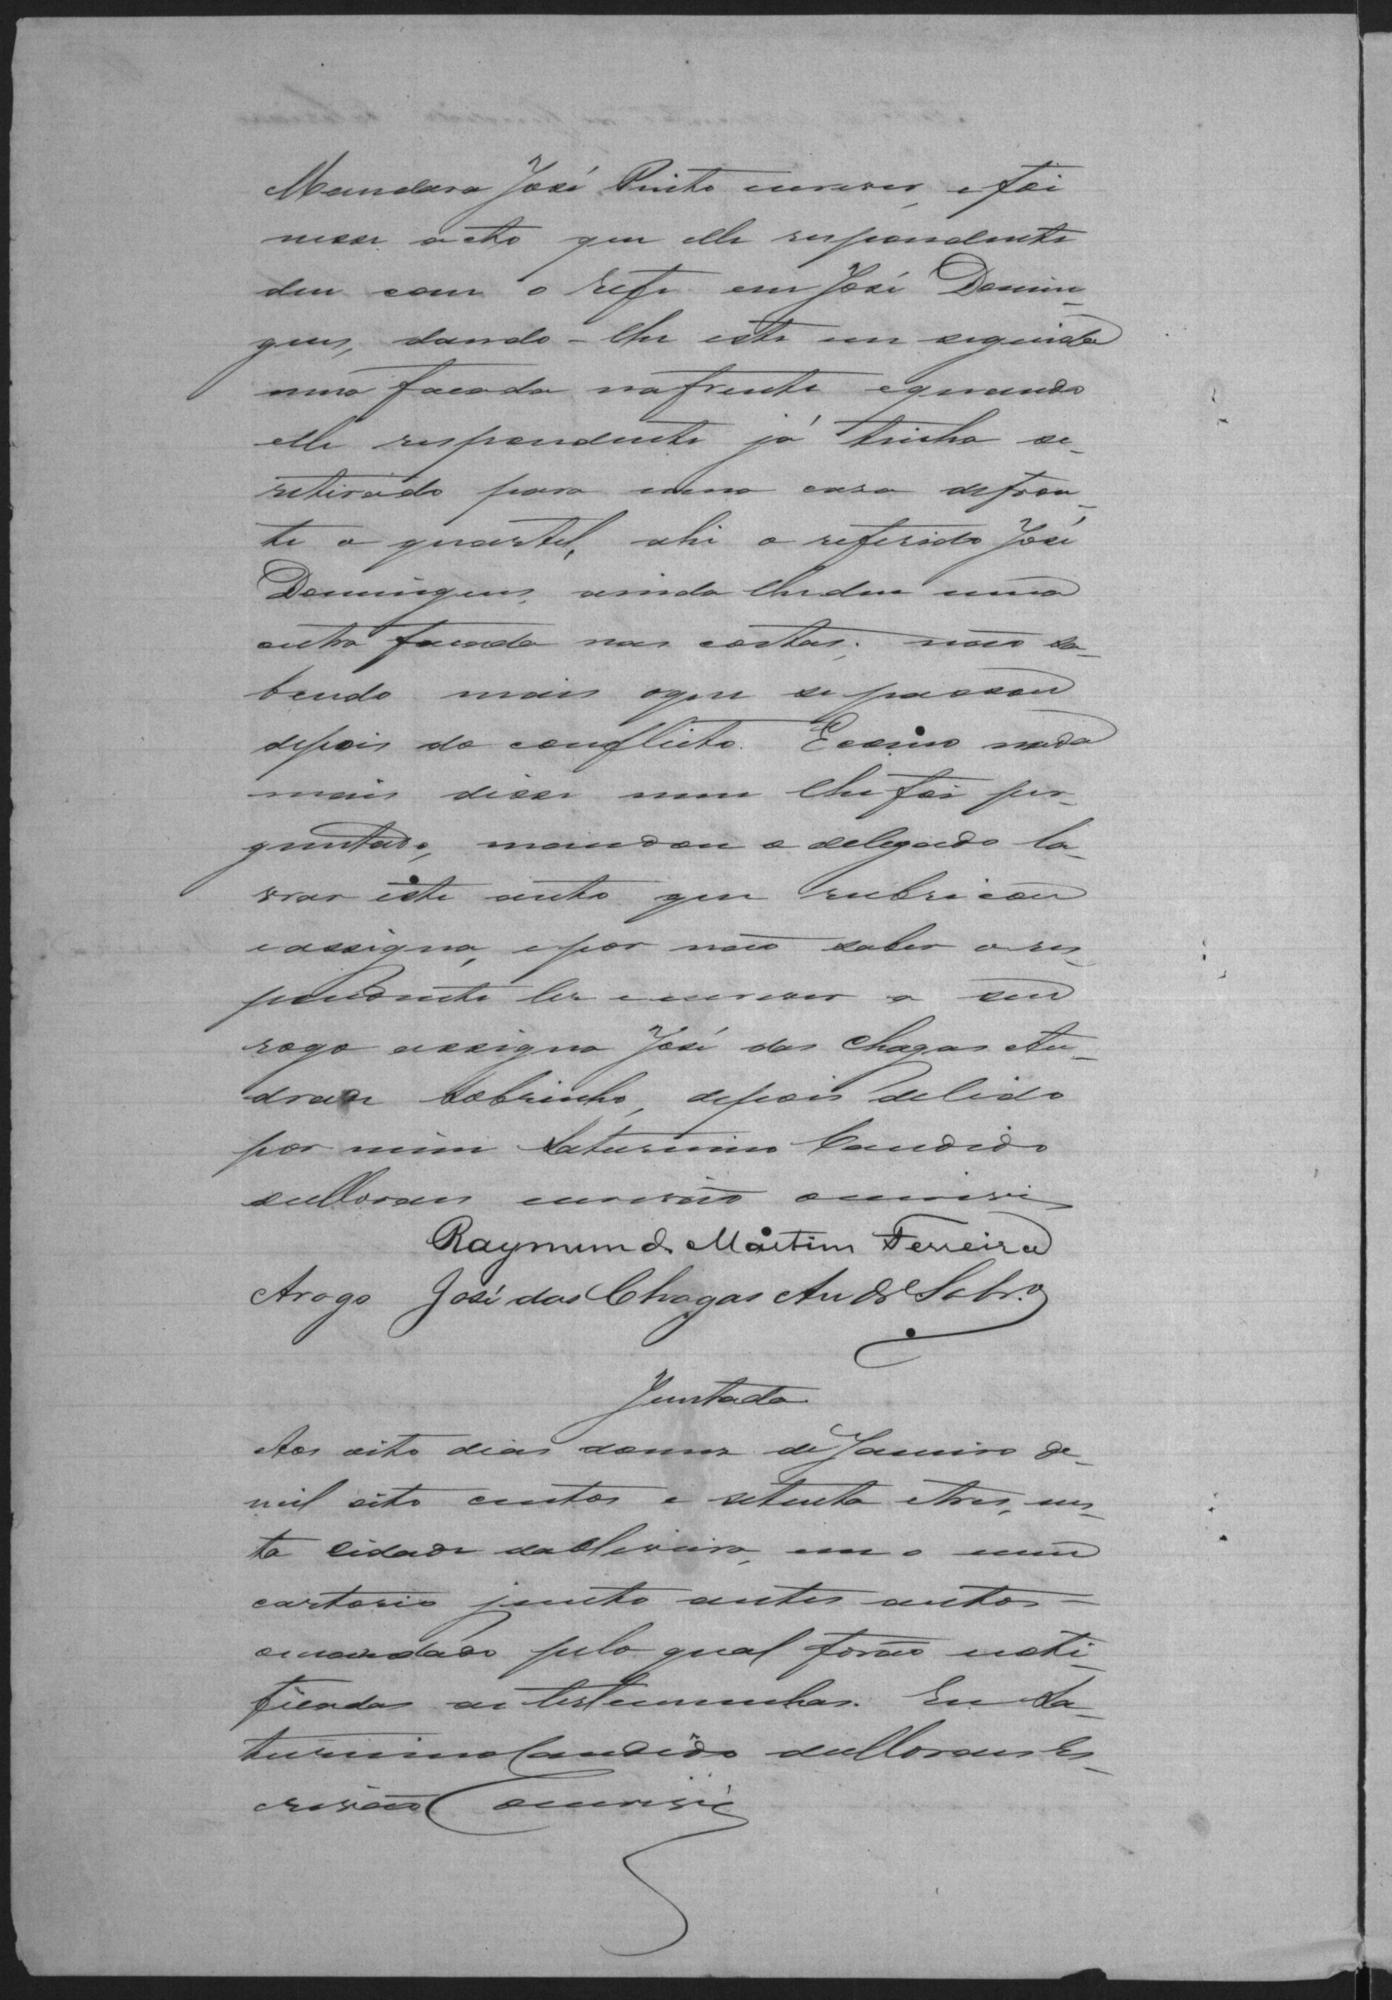 Mandara José Pinto escrever, e foi
nesse acto que elle respondente
deu com o refe em José Domin-
gues, dando-lhe este em seguida
uma facada na frente e quando
elle respondente já tinha se-
retirado para uma casa defron-
te o quartel, ahi o referido José
Domingues, ainda lhe deu uma
outra facada nas costas; não sa-
bendo mais o que se passou
depois do conflicto. E como nada
mais disse nem lhe foi per-
guntado, mandou o delegado la-
vrar este auto que rubricou
e assigna, e por não saber o res-
pondente ler e escrever a seu
rogo assigna José das Chagas An-
drade Sobrinho, depois de lido
por mim Saturnino Candido
de Moraes escrivão o escrevi
Raymundo Martins Ferreira
Arogo José das Chagas Andre Sobr.o
Juntada
Aos oito dias do mez de Janeiro de-
mil oito centos e setenta e tres, nes-
ta cidade da Oliveira, em o meu
cartorio junto a estes autos-
o mandado pelo qual forão noti-
ficadas as testemunhas. Eu Sa-
turnino Candido de Moraes Es-
crivão o escrevi